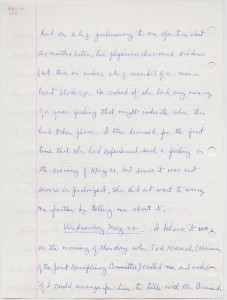 had an e.k.g. preliminary to an operation about
six months later, his physician discovered evidence
(not then on earlier e.k.g. records) of a massive
heart blockage. He asked if she had any memory
of a queer feeling that might indicate when this
had taken place. I then learned for the first
time that she had experienced such a feeling on
the evening of May 21, but since it was not
severe or prolonged, she did not want to worry
me further by telling me about it.
Wednesday May 22. I believe it was
on the morning of this day when Ted
of the Joint Disciplinary Committee) called me and asked
if I could arrange for him to talk with Mr.